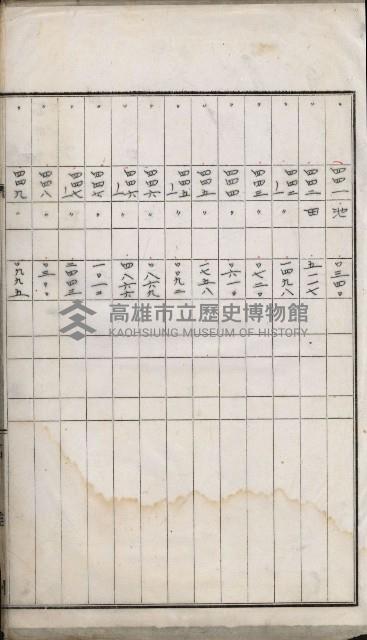 〃 四四一 池 〇三四〇
〃 四四二 田 五一一七
〃 四四二ノ一 〃 一四九八
〃 四四三 〃 〇七二〇
〃 四四四 〃 〇六一〇
〃 四四五 〃 一七五八
〃 四四五ノ一 〃 〇〇九二
〃 四四六 〃 〇八六九
〃 四四六ノ一 〃 四八六六
〃 四四七 〃 一〇一〇
〃 四四七ノ一 〃 二四四三
〃 四四八 〃 〇三〇〇
〃 四四九 〃 〇九九五
高雄市立歷史博物館
KAOHSIUNG MUSEUM OF HISTORY